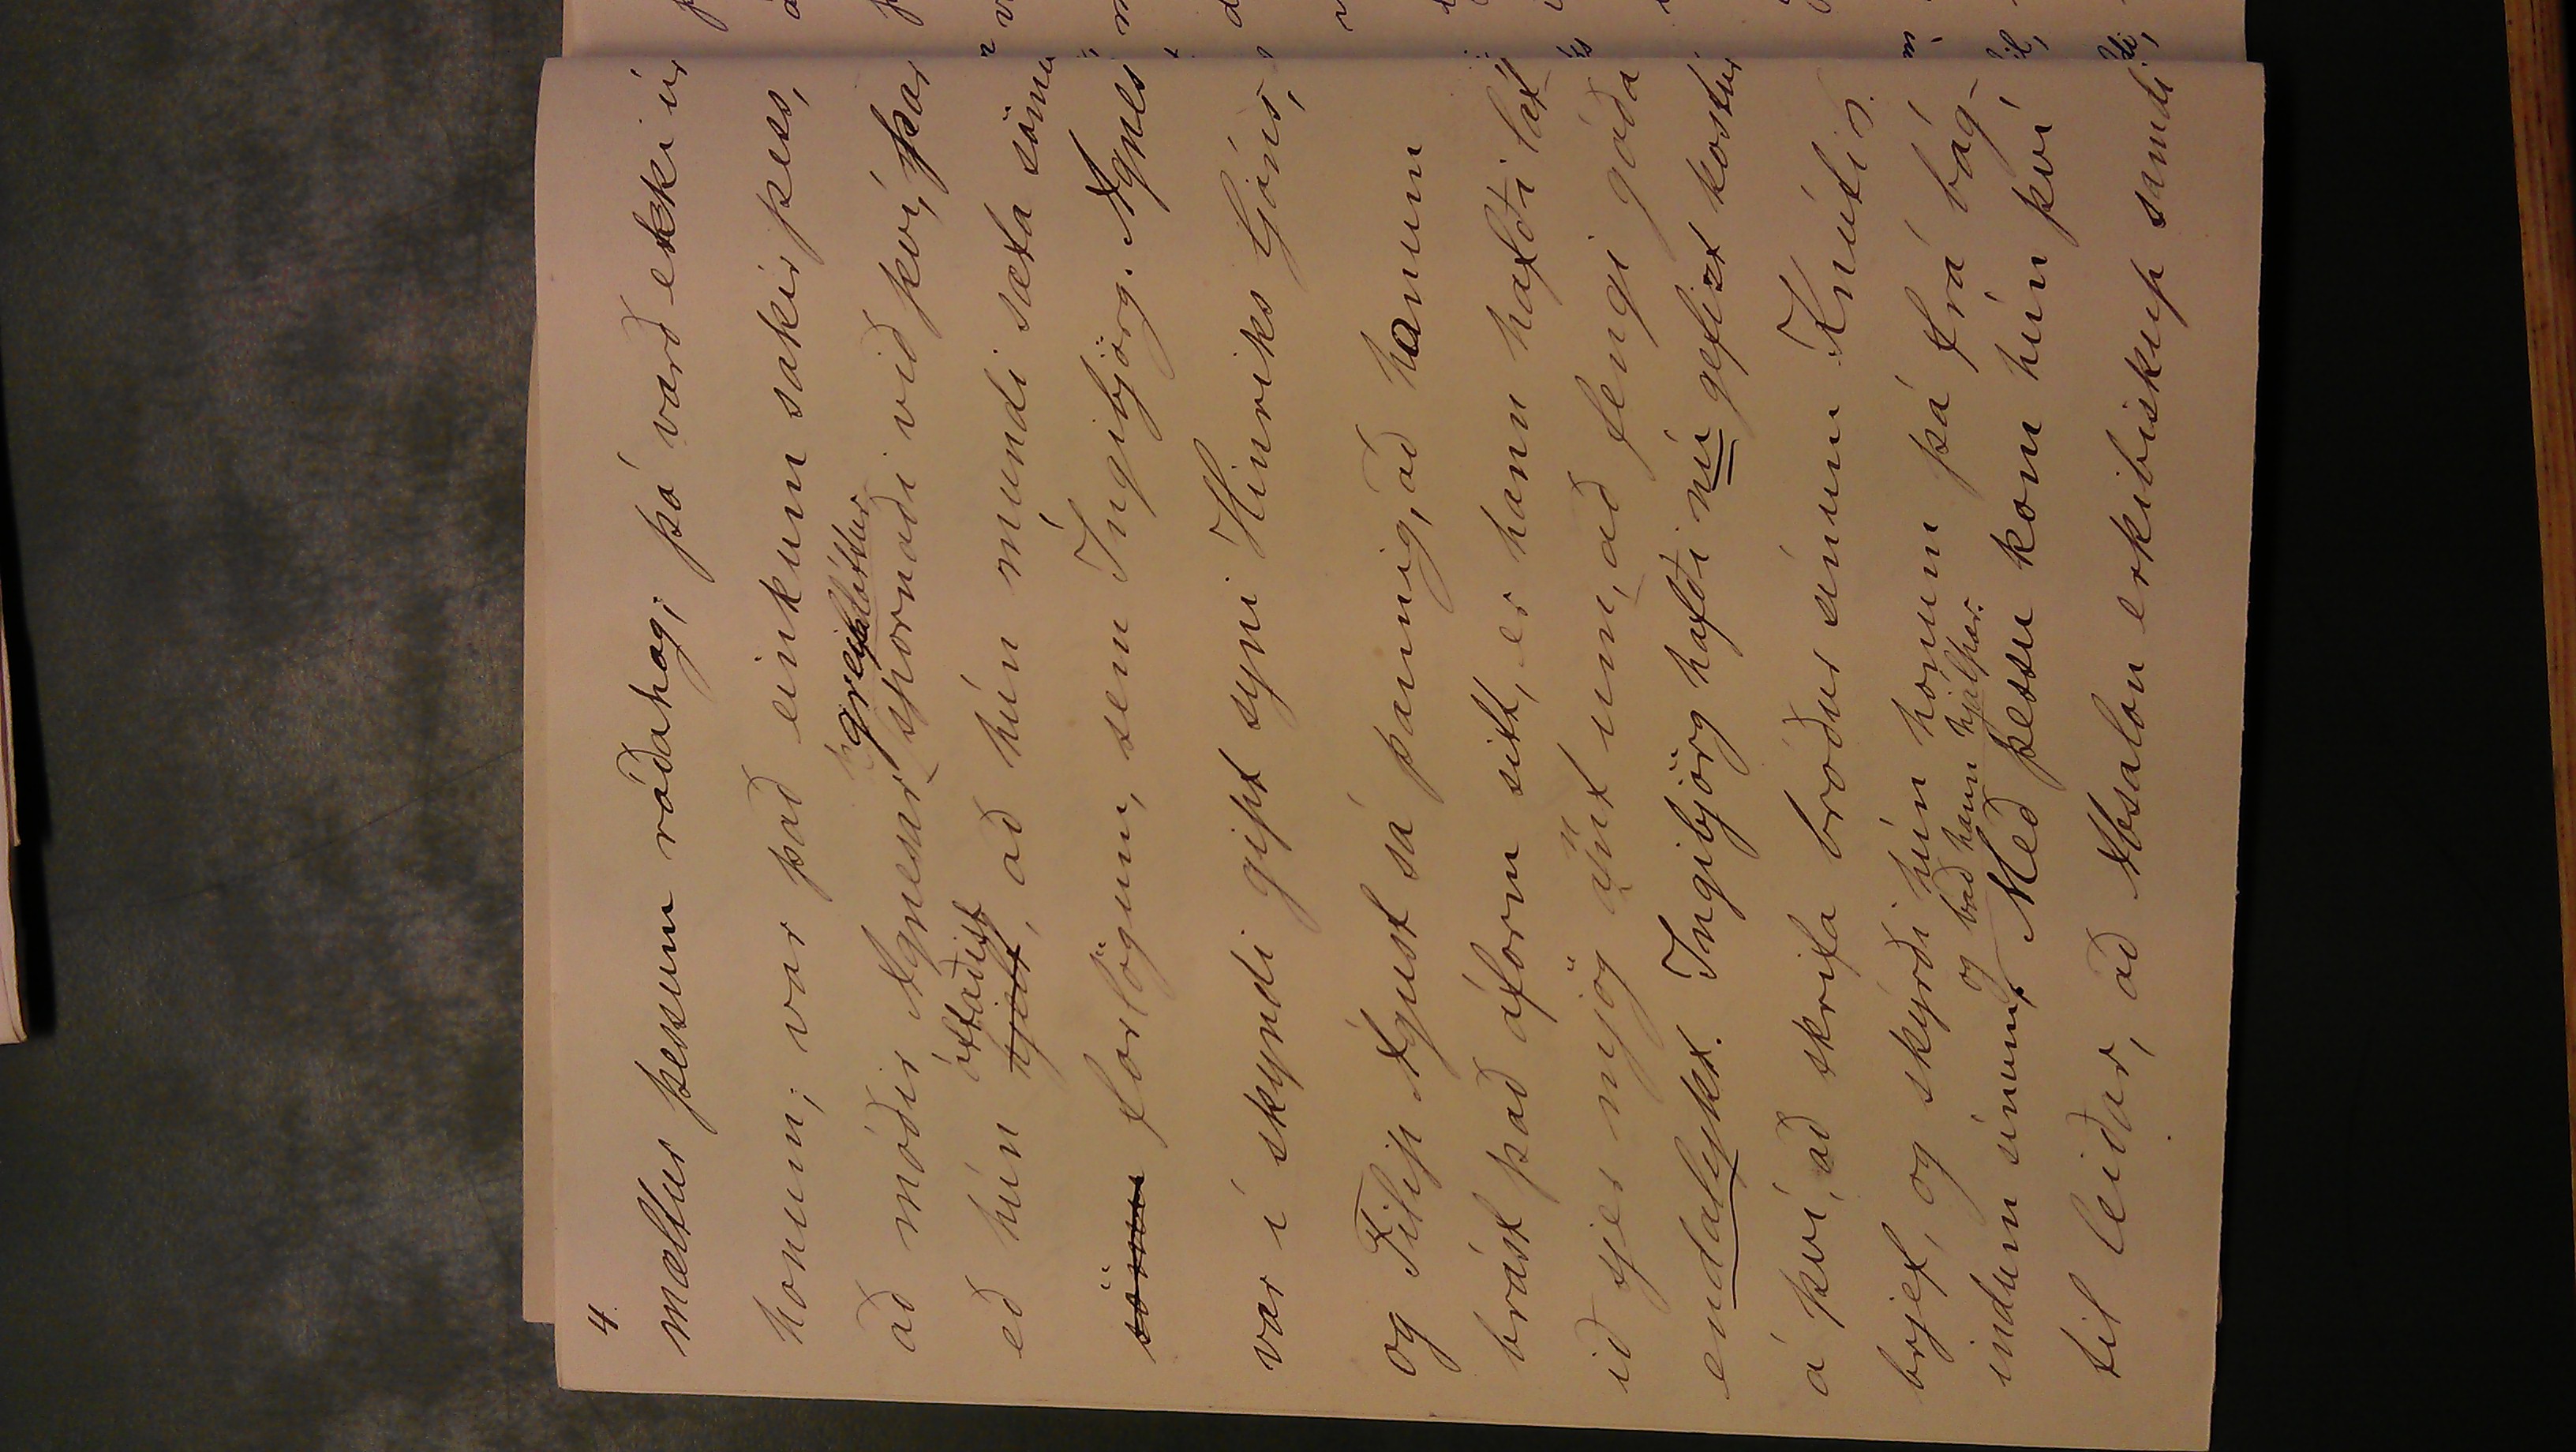 4.
mæltur þessum ráðahag; þó varð ekki úr
honum; var það einkum sakir þess,
að móðir Agnesar greifadóttur spornaði við því, þar
eð hún óttaðist tjelt, að hún mundi sæta sömu
sömu forlögum, sem Ingibjörg. Agnes
var í skyndi gift syni Hinriks ljóns,
og Filip Ágúst sá þannig, að honum
brást það áform sitt, er hann hafði lát-
ið sjer mjög annt um, að fengi góða
endalykt. Ingibjörg hafði nú gefizt kostur
á því, að skrifa bróður sínum Knúti
brjef, og skýrði hún honum þá frá bág-
indum sínum, og bað hann hjálpar. Með þessu kom hún því
til leiðar, að Absalon erkibiskup samdi